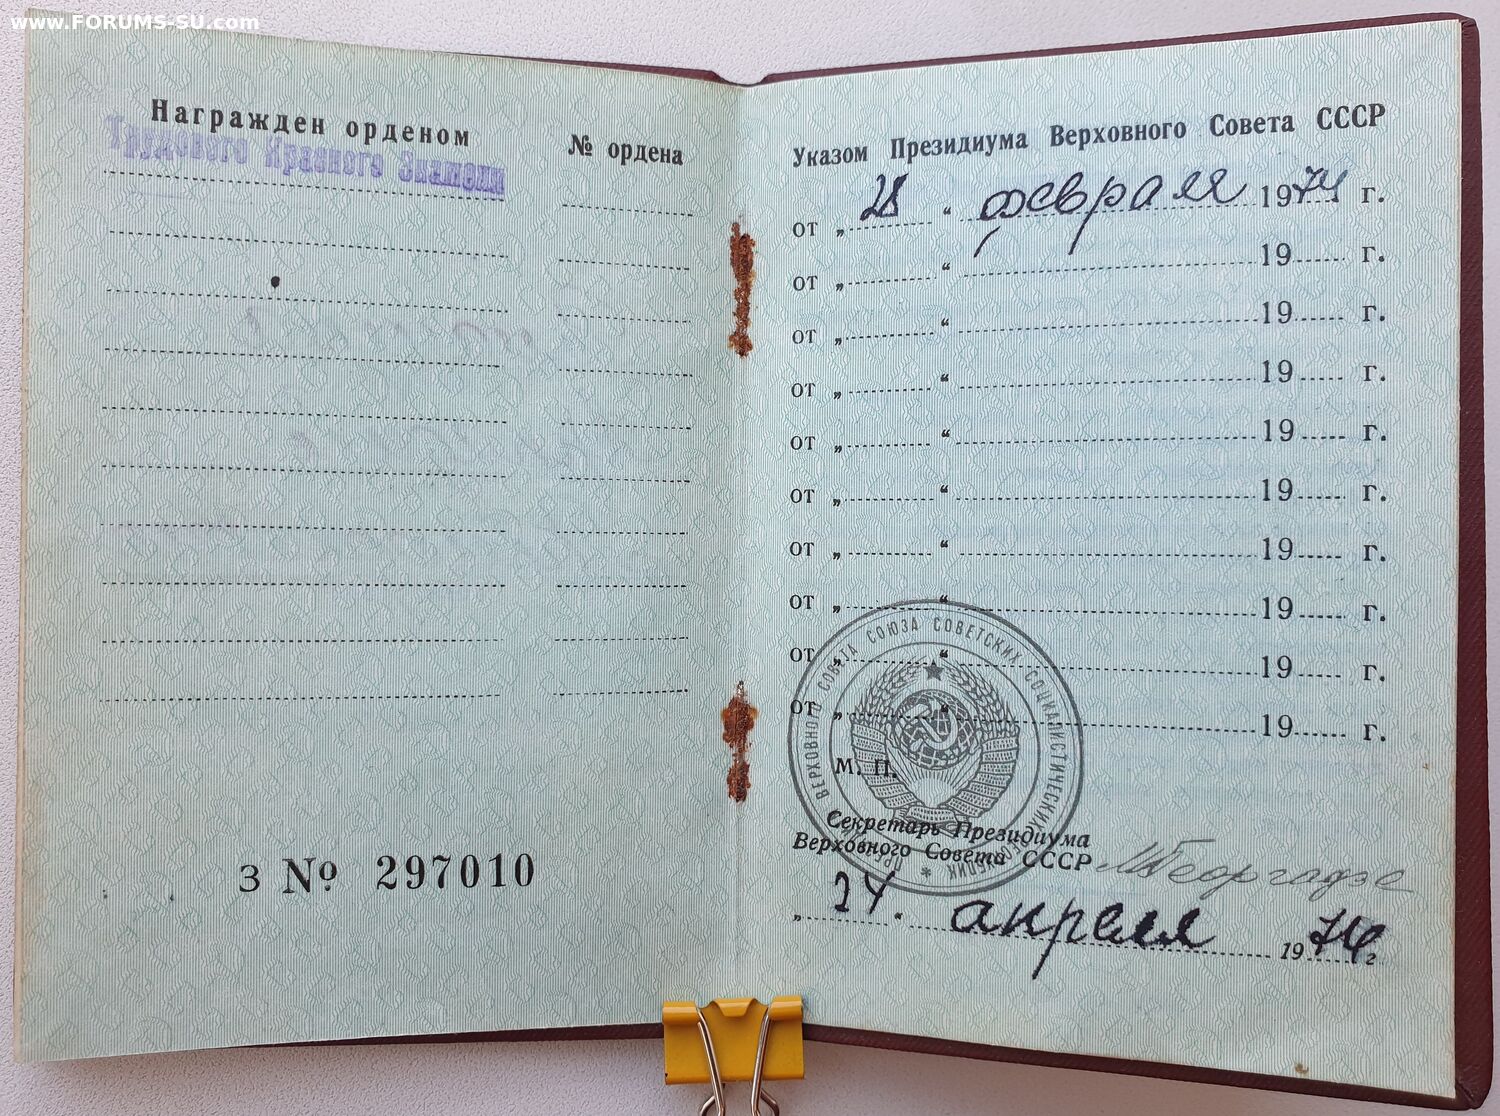 www.FORUMS-SU.com
Награжден орденом
№ ордена
Трудового Красного Знамени
З № 297010
Указом Президиума Верховного Совета СССР
от „ 28 “ февраля 1974 г.
от „ “ 19 г.
от „ “ 19 г.
от „ “ 19 г.
от „ “ 19 г.
от „ “ 19 г.
от „ “ 19 г.
от „ “ 19 г.
от „ “ 19 г.
от „ “ 19 г.
М. П.
ПРЕЗИДИУМ ВЕРХОВНОГО СОВЕТА СОЮЗА СОВЕТСКИХ СОЦИАЛИСТИЧЕСКИХ РЕСПУБЛИК *
Секретарь Президиума
Верховного Совета СССР МГеоргадзе
„ 24 “ апреля 1974 г